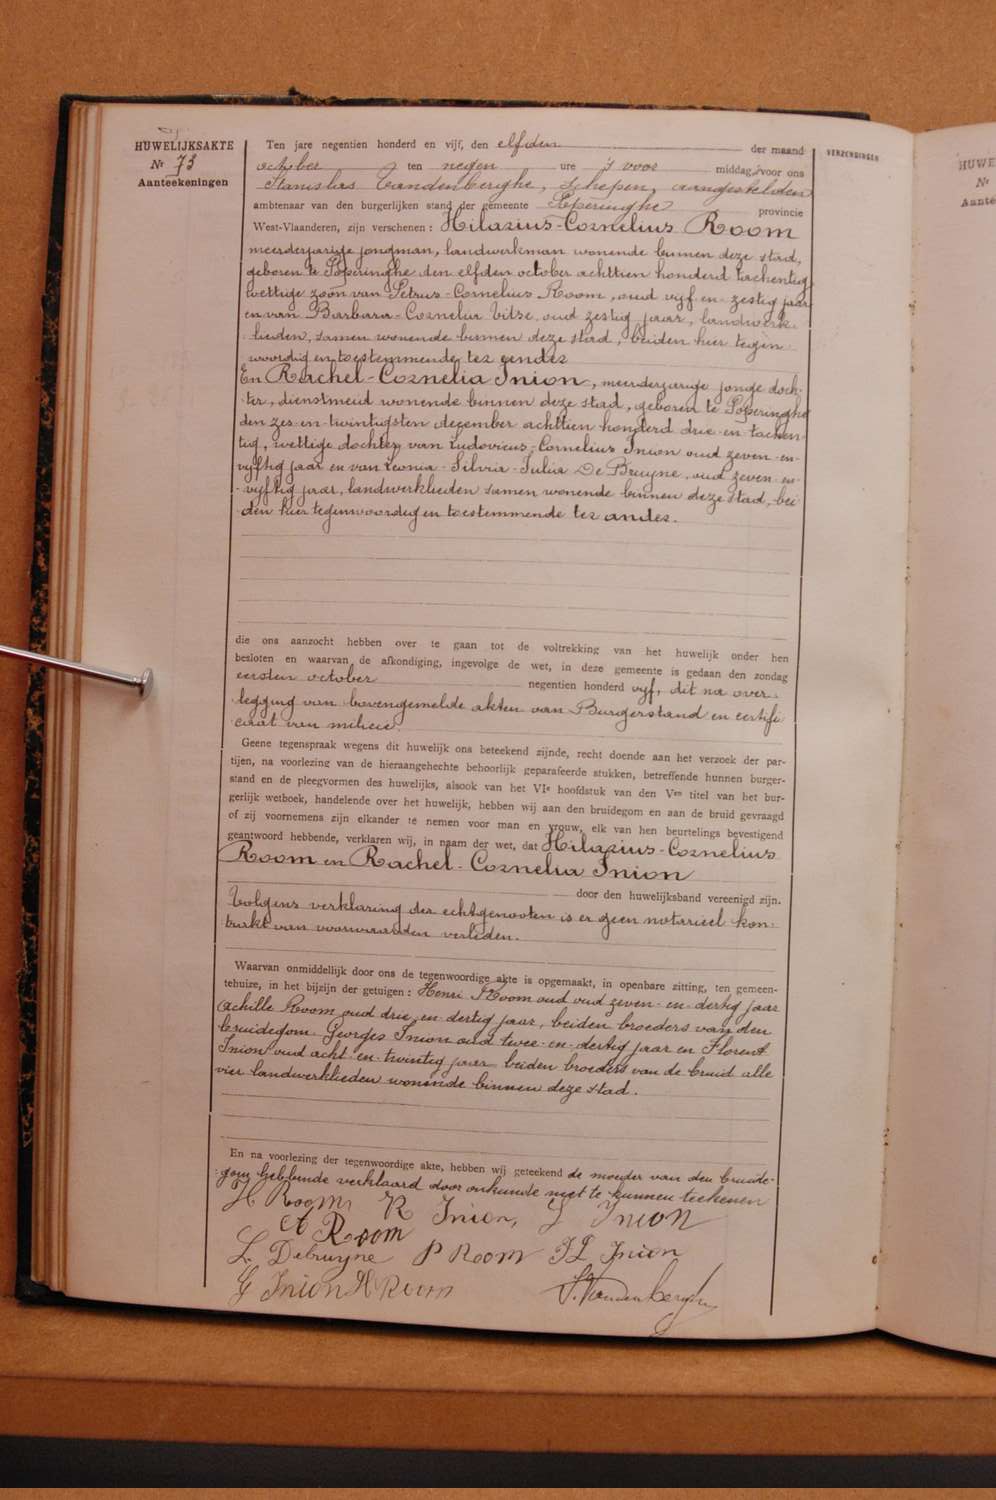 HUWELIJKSAKTE
Nr 73
Aanteekeningen
Ten jare negentien honderd en vijf, den elfden der maand
october ten negen ure 's voor middag, voor ons
Stanislas Vandenberghe, schepen, aangestelden
ambtenaar van den burgerlijken stand der gemeente Poperinghe provincie
West-Vlaanderen, zijn verschenen : Hilarius-Cornelius Room
meerderjarige jongman, landwerkman wonende binnen deze stad,
geboren te Poperinghe den elfden october achttien honderd tachentig,
wettige zoon van Petrus-Cornelius Room, oud vijf-en-zestig jaar
en van Barbara-Cornelia Vitse, oud zestig jaar, landwerk-
lieden, samen wonende binnen deze stad, beiden hier tegen-
woordig en toestemmende ter eender
En Rachel-Cornelia Inion, meerderjarige jonge doch-
ter, dienstmeid wonende binnen deze stad, geboren te Poperinghe
den zes-en-twintigsten december achttien honderd drie-en-tachen-
tig, wettige dochter van Ludovicus-Cornelius Inion oud zeven-en-
vijftig jaar en van Leonia-Silvia-Julia De Bruyne, oud zeven-en-
vijftig jaar, landwerklieden samen wonende binnen deze stad, bei-
den hier tegenwoordig en toestemmende ter ander.
die ons aanzocht hebben over te gaan tot de voltrekking van het huwelijk onder hen
besloten en waarvan de afkondiging, ingevolge de wet, in deze gemeente is gedaan den zondag
eersten october negentien honderd vijf, dit na over-
legging van bovengemelde akten van Burgerstand en certifi-
caat van milicie.
Geene tegenspraak wegens dit huwelijk ons beteekend zijnde, recht doende aan het verzoek der par-
tijen, na voorlezing van de hieraangehechte behoorlijk geparafeerde stukken, betreffende hunnen burger-
stand en de pleegvormen des huwelijks, alsook van het VIe hoofdstuk van den Ven titel van het bur-
gerlijk wetboek, handelende over het huwelijk, hebben wij aan den bruidegom en aan de bruid gevraagd
of zij voornemens zijn elkander te nemen voor man en vrouw, elk van hen beurtelings bevestigend
geantwoord hebbende, verklaren wij, in naam der wet, dat Hilarius-Cornelius
Room en Rachel-Cornelia Inion
door den huwelijksband vereenigd zijn.
Volgens verklaring der echtgenooten is er geen notarieel kon-
trakt van voorwaarden verleden.
Waarvan onmiddellijk door ons de tegenwoordige akte is opgemaakt, in openbare zitting, ten gemeen-
tehuize, in het bijzijn der getuigen : Henri Room oud oud zeven-en-dertig jaar
Achille Room oud drie-en-dertig jaar, beiden broeders van den
bruidegom. Georges Inion oud twee-en-dertig jaar en Florent
Inion oud acht-en-twintig jaar beiden broeders van de bruid alle
vier landwerklieden wonende binnen deze stad.
En na voorlezing der tegenwoordige akte, hebben wij geteekend de moeder van den bruide-
gom hebbende verklaard door onkunde niet te kunnen teekenen
H Room R Inion, L Inion
A Room
L. Debruyne P Room Fl Inion
G Inion H Room S. Vandenberghe
VERZENDINGEN
HUWE
Nr
Aante